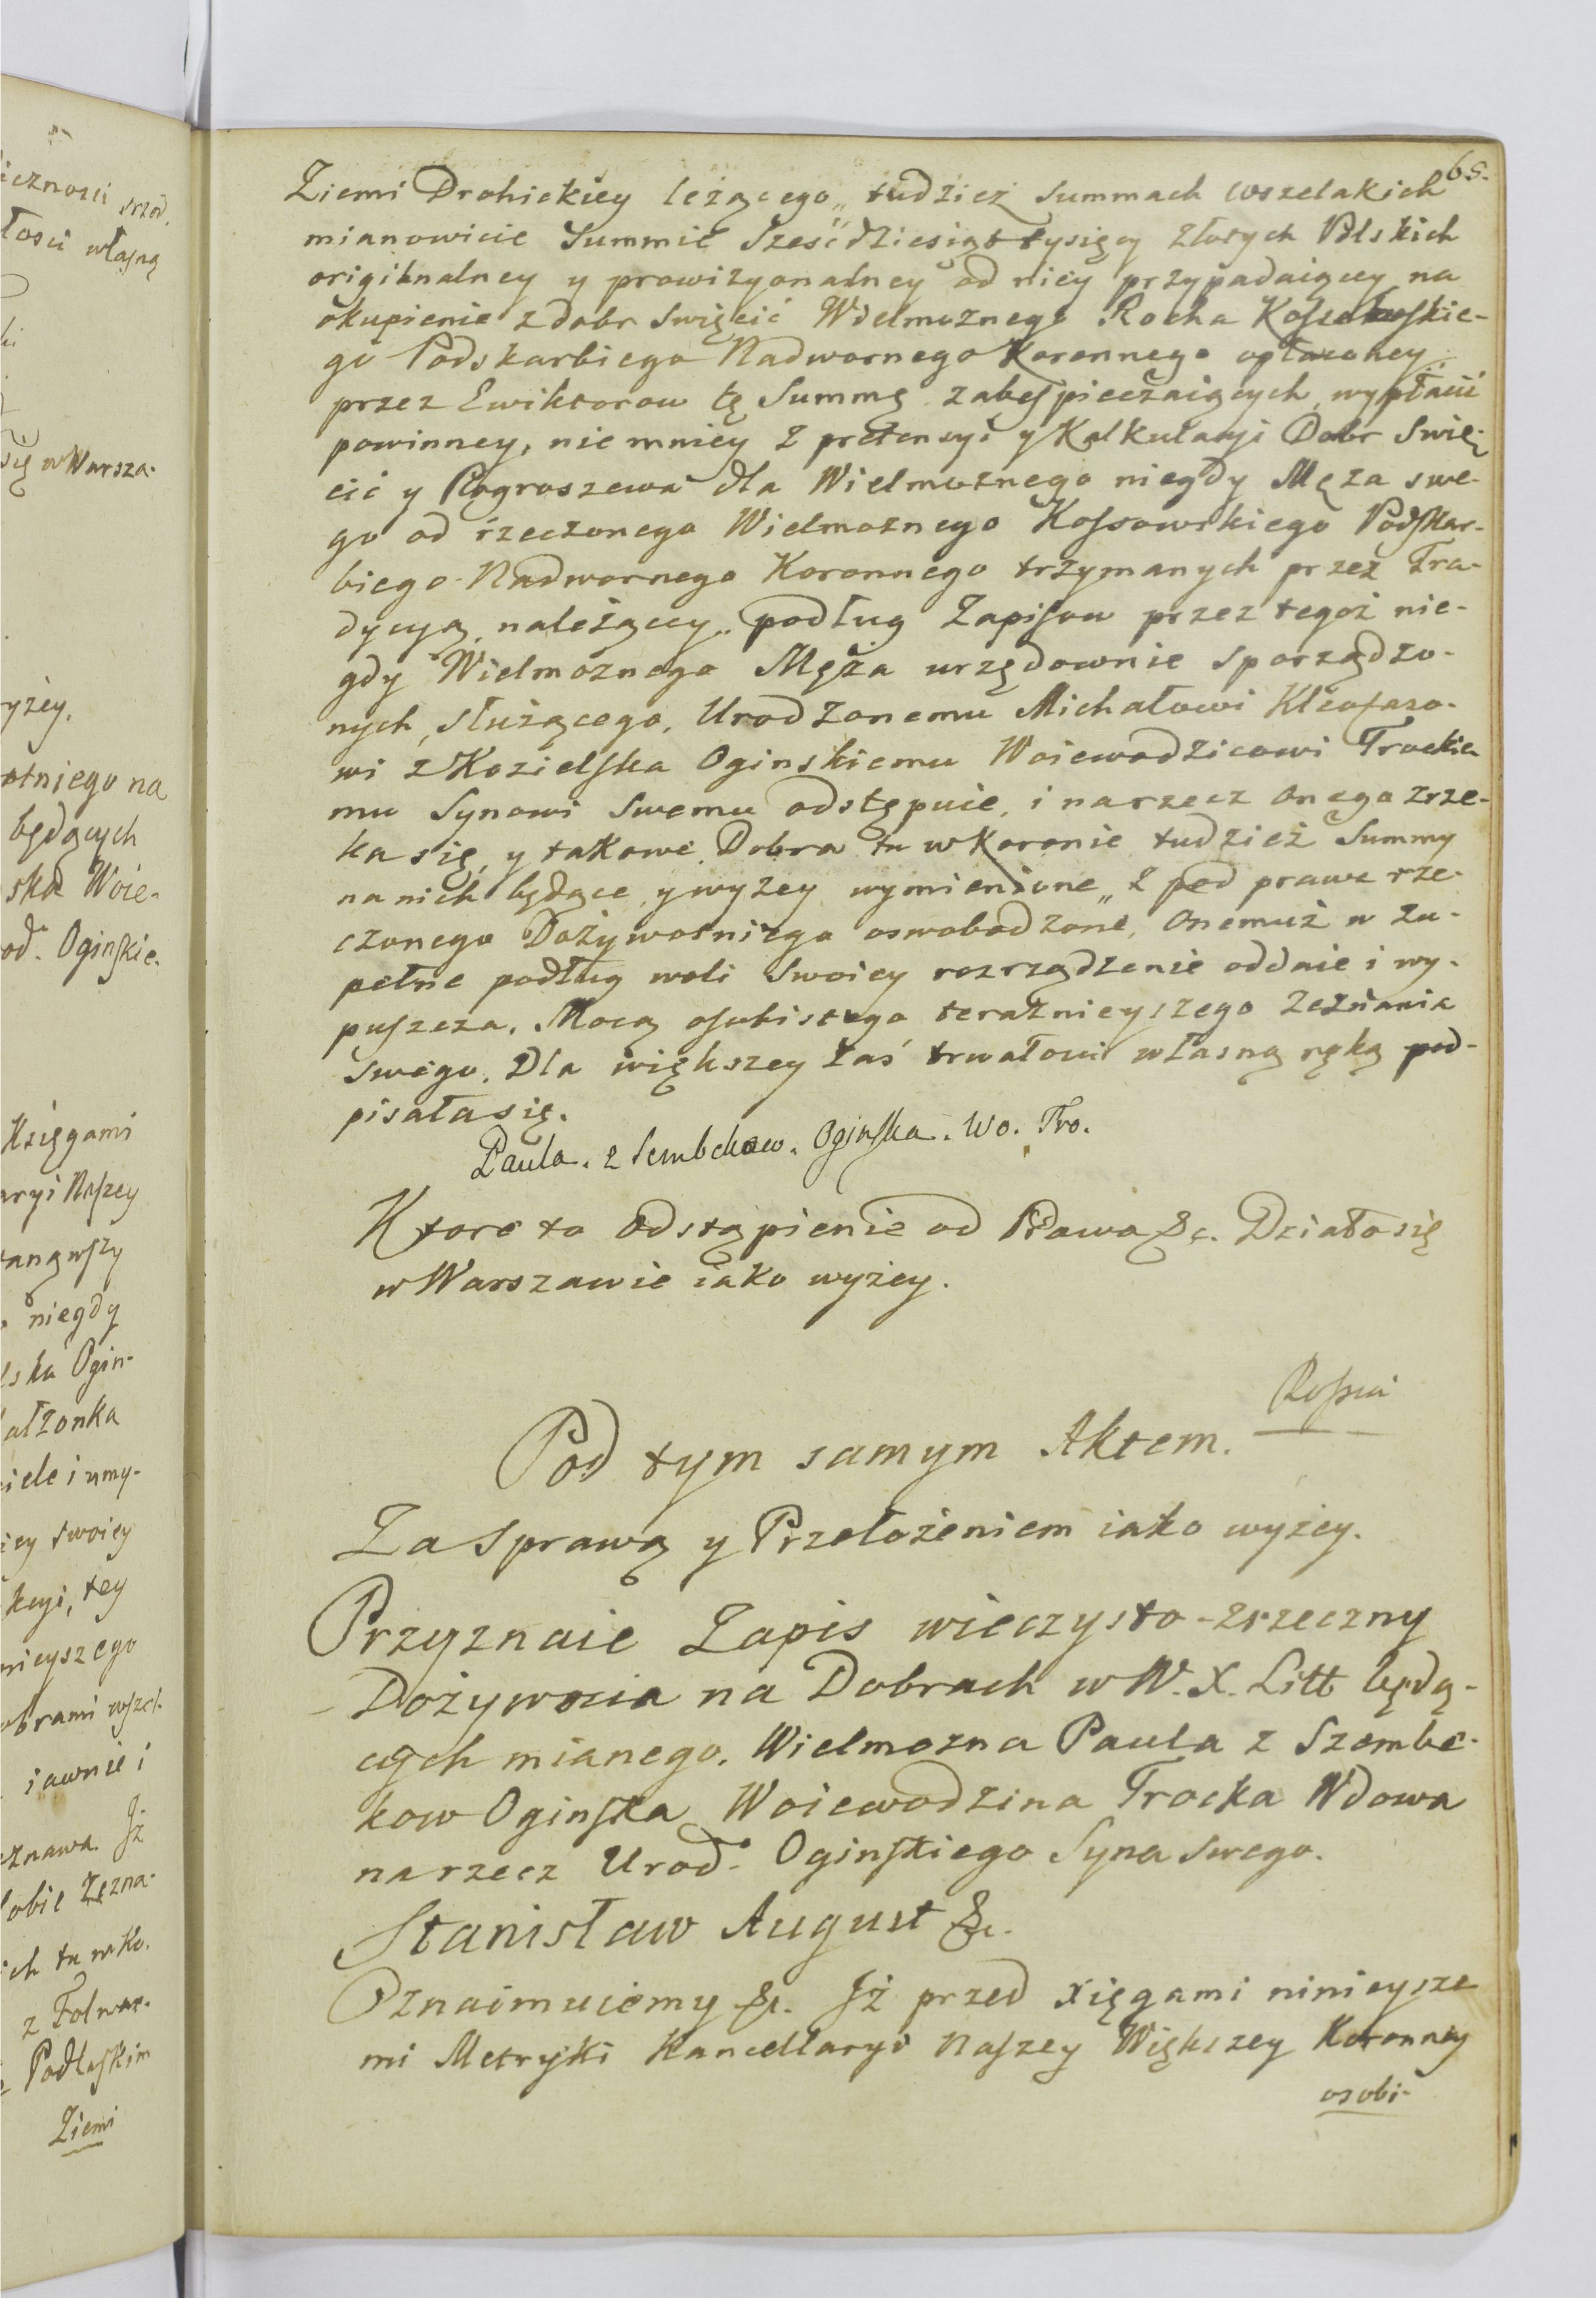 icznosci srzod.
łosci własną
się w Warsza-
yżey.
otniego na
będących
ska Woie-
od. Oginskie-
Xsięgami
aryi Naszey
tanąwszy
niegdy
lska Ogin-
ałzonka
iele i umy-
iey swoiey
kcyi, tey
nieyszego
obrami wszel-
iawnie i
eznawa. Iż
sobie zezna-
ich tu w Ko-
z Folwar-
Podlaskim
Ziemi
65.
Ziemi Drohickiey leżącego„ tudzież Summach wszelakich
mianowicie Summie Sześćdziesiąt tysięcy Złotych Polskich
originalney y prowizyonalney od niey przypadaiącey na
okupienie z dobr Swięcić Wielmożnego Rocha Kossowskie-
go Podskarbiego Nadwornego Koronnego opłaconey
przez Ewiktorow tę Summę zabespieczaiących, wypłacić
powinney, nie mniey z pretensyi y Kalkulacyi Dobr Swię-
cić y Rogroszewa dla Wielmożnego niegdy Męża swe-
go od rzeczonego Wielmożnego Kossowskiego Podskar-
biego Nadwornego Koronnego trzymanych przez Tra-
dycyą, należącey„ podług Zapisow przez tegoż nie-
gdy Wielmożnego Męża urzędownie sporządzo-
nych, służącego, Urodzonemu Michałowi Kleofaso-
wi z Kozielska Oginskiemu Woiewodzicowi Trockie-
mu Synowi Swemu odstępuie, i na rzecz onego zrze-
ka się, y takowe Dobra tu w Koronie tudzież Summy
na nich będące, y wyżey wymienione„ z pod prawa rze-
czonego Dożywotniego oswobodzone, Onemuż w zu-
pełne podług woli Swoiey rozrządzenie oddaie i wy-
puszcza. Mocą osobistego teraznieyszego Zeznania
swego. Dla większey zaś trwałości własną ręką pod-
pisała się.
Paula. z Sembekow. Oginska. Wo. Tro.
Ktore to odstąpienie od Prawa &c. Działo się
w Warszawie iako wyżey.
Pod tym samym Aktem.
Za Sprawą y Przełożeniem iako wyżey.
Przyznaie Zapis wieczysto-zrzeczny
Dożywocia na Dobrach w W. X. Litt będą-
cych mianego. Wielmożna Paula z Szembe-
kow Oginska Woiewodzina Trocka Wdowa
na rzecz Urod. Oginskiego Syna Swego.
Stanisław August &c.
Oznaimuiemy &c. Iż przed Xięgami ninieysze
mi Metryki Kancellaryi Naszey Większey Koronney
osobi-